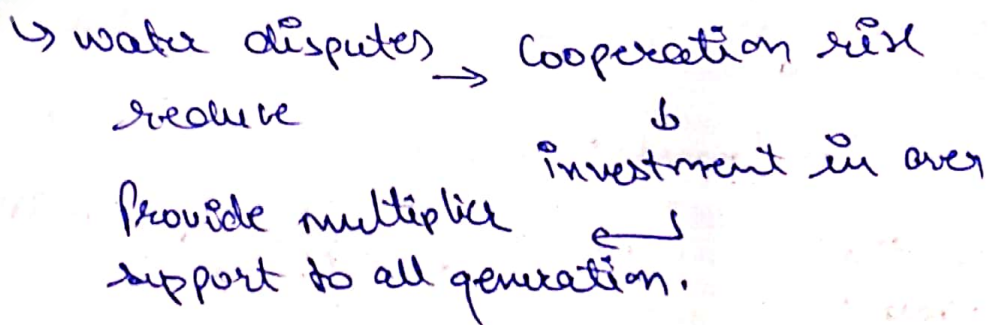 ↳ water disputes → Cooperation rise
reduce ↓
investment in over
Provide multiplier ↵
support to all generation.